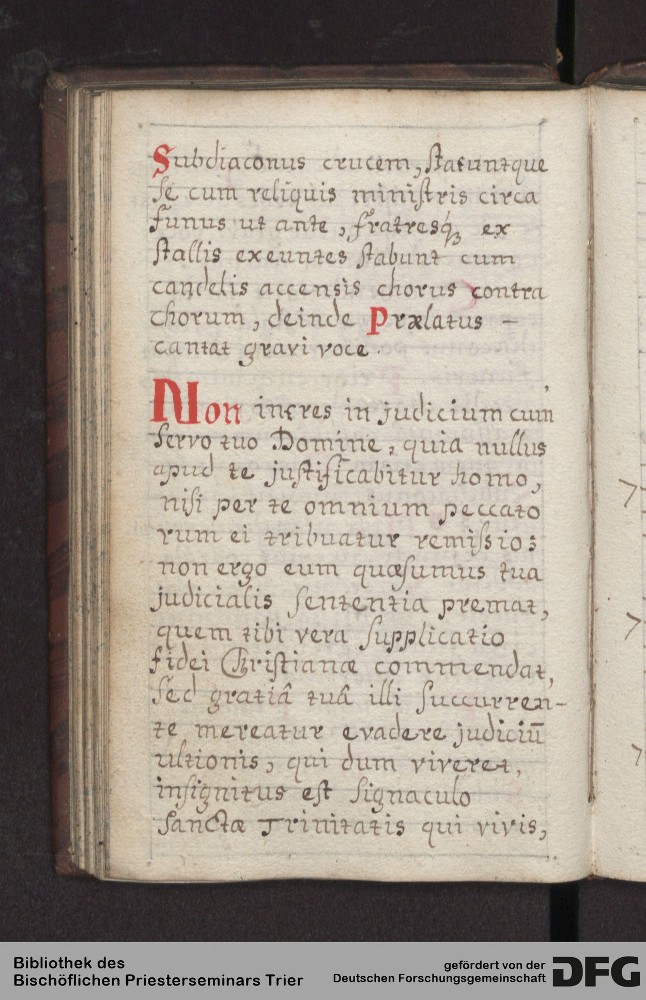 Subdiaconus crucem, statuntque
se cum reliquis ministris circa
funus ut ante, fratresq́ꝫ ex
stallis exeuntes stabunt cum
candelis accensis chorus contra
chorum, deinde Prælatus –
cantat gravi voce.
Non intres in judicium cum
servo tuo Domine, quia nullus
apud te justificabitur homo,
nisi per te omnium peccato
rum ei tribuatur remissio;
non ergo eum quæsumus tua
judicialis sententia premat,
quem tibi vera supplicatio
fidei Christianæ commendat,
sed gratiâ tuâ illi succurren-
te mereatur evadere judiciū
ultionis, qui dum viveret,
insignitus est signaculo
Sanctæ Trinitatis qui vivis,
Bibliothek des
Bischöflichen Priesterseminars Trier
gefördert von der
Deutschen Forschungsgemeinschaft
DFG